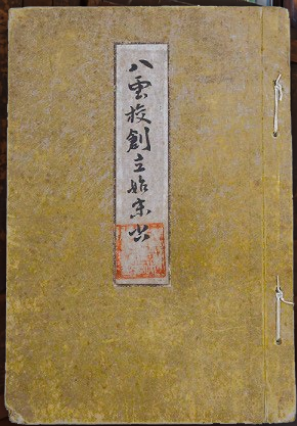 八雲校創立始末